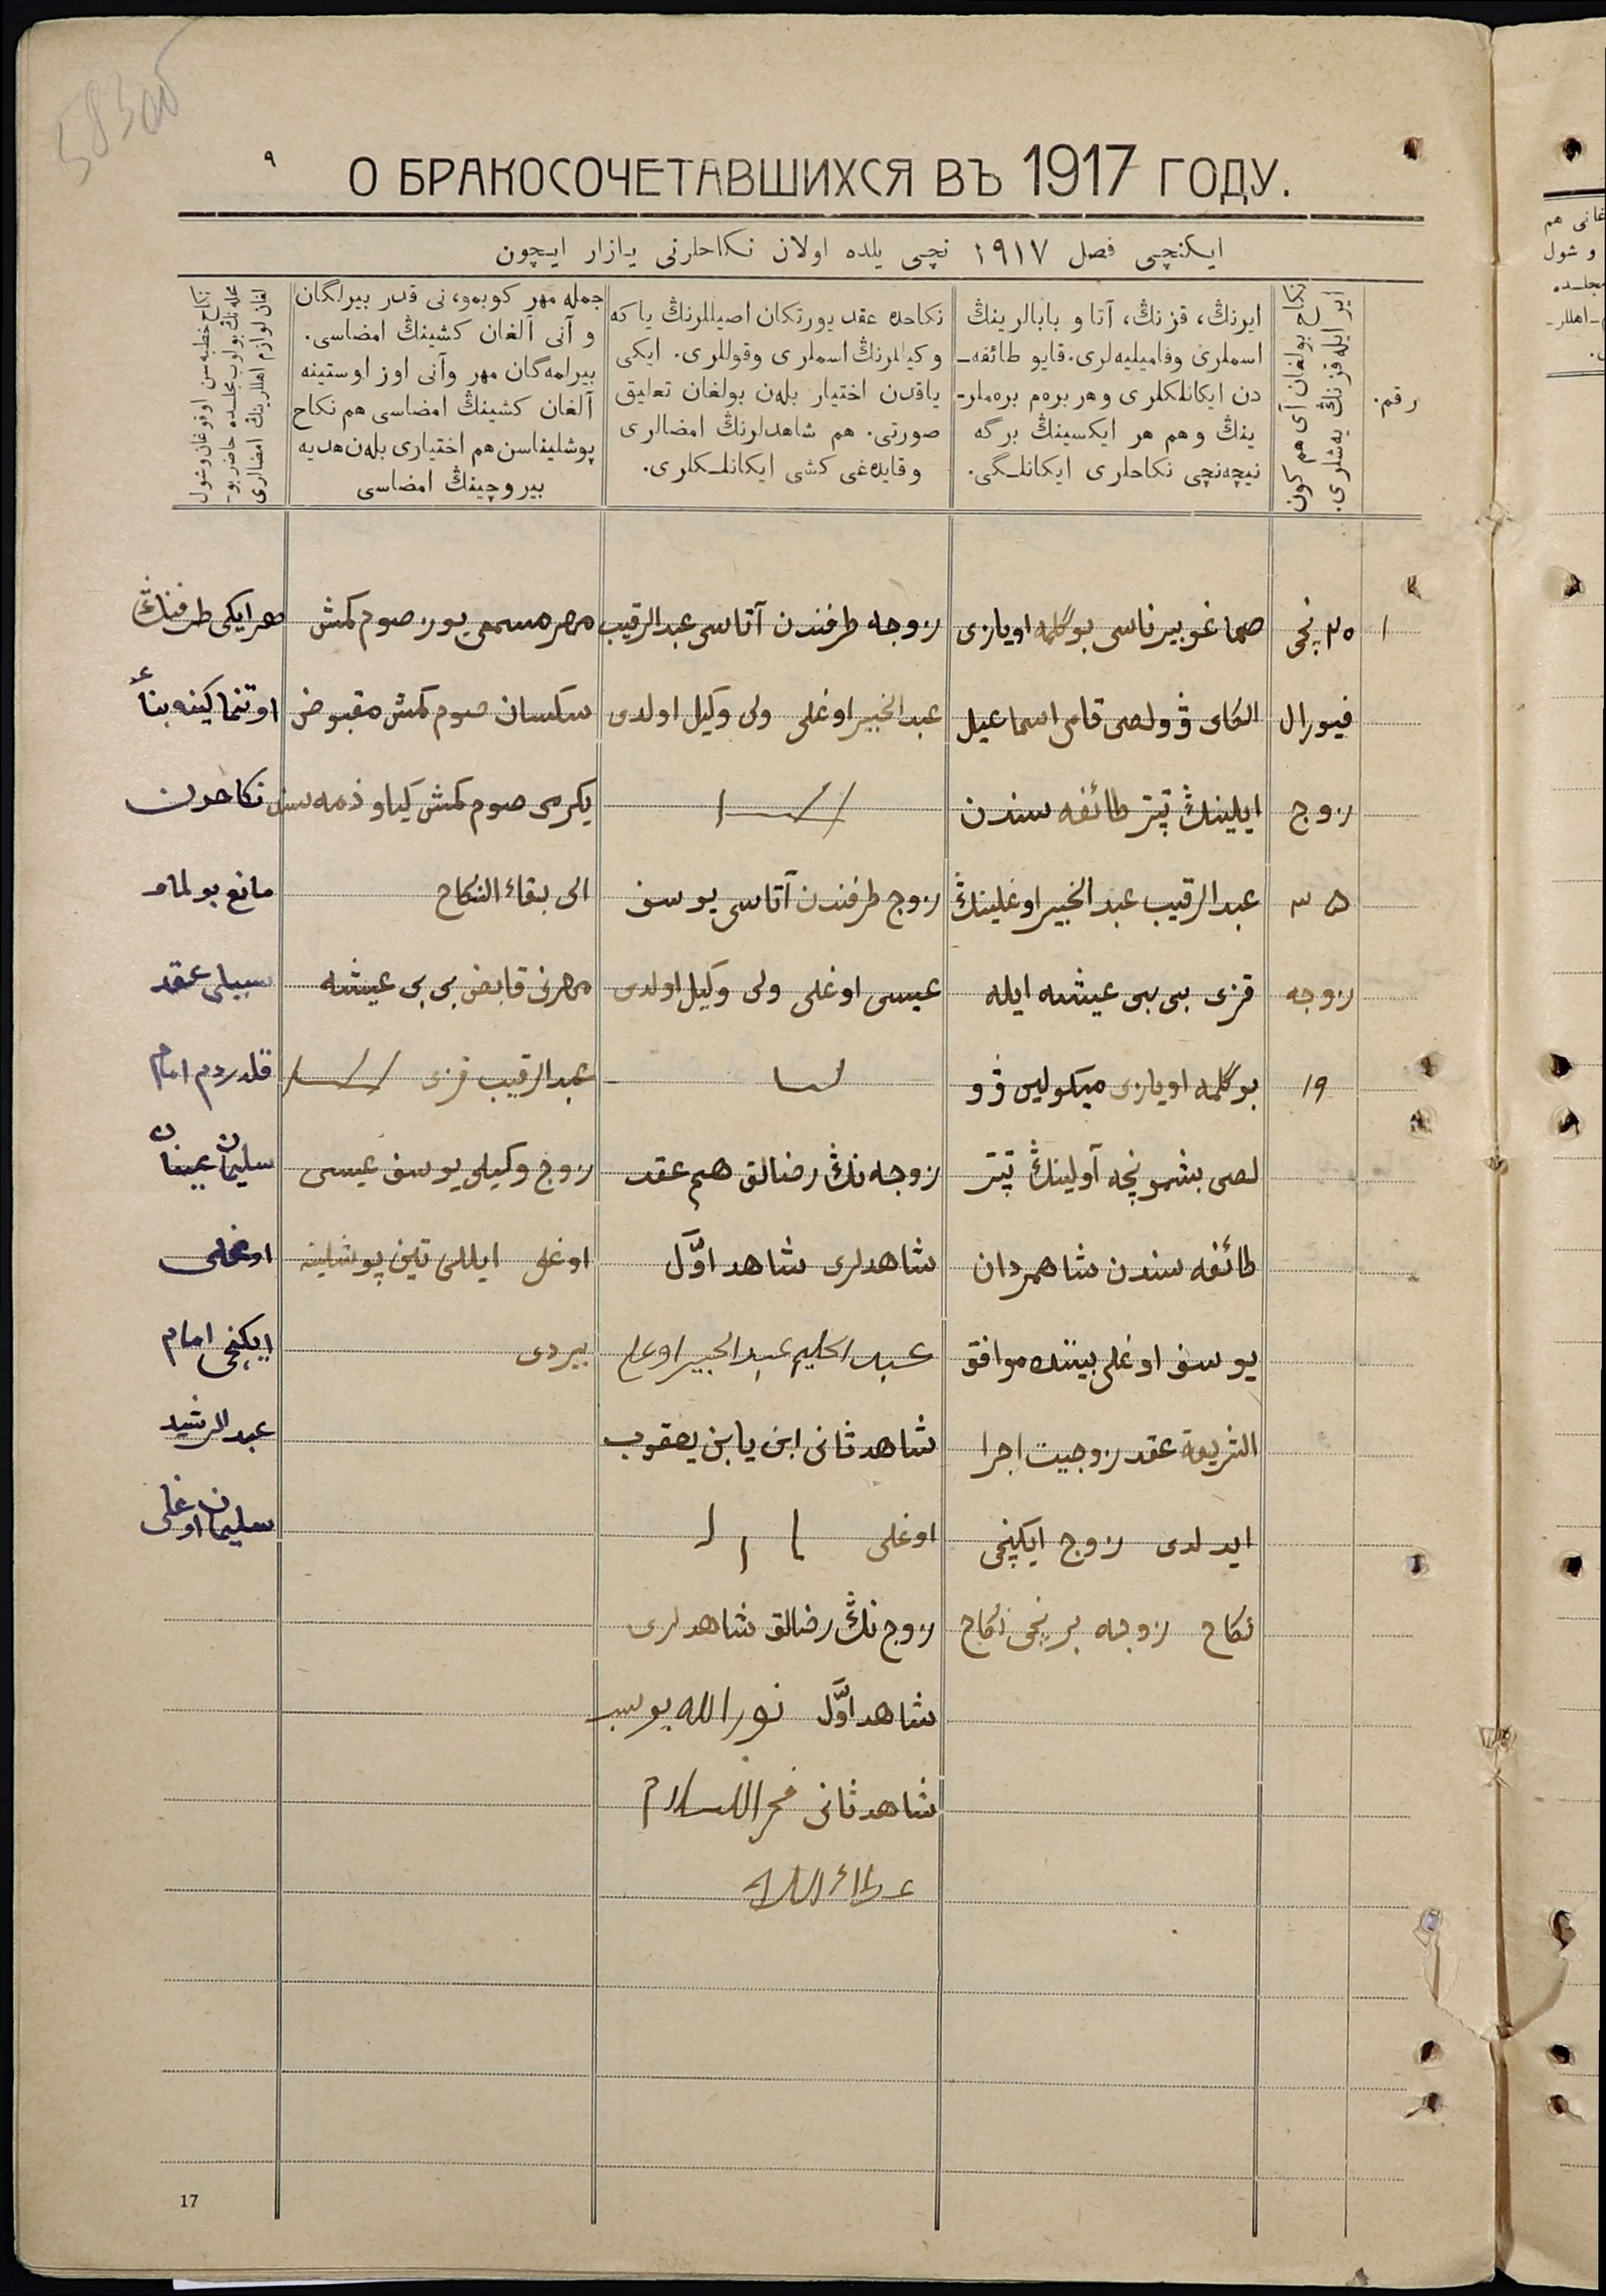 583 об
٩
О БРАКОСОЧЕТАВШИХСЯ ВЪ 1917 ГОДУ.
ایکنچی فصل ١٩١٧ نچی یلده اولان نکاحلرنی یازار ایچون
رقم.
نکاح بولغان آی هم کون
ایر ایله قزنڭ یەشلری.
ایرنڭ، قزنڭ، آتا و بابالرینڭ
اسملری وفامیلیەلری. قایو طائفه‌ـ
دن ایکانلکلری و هر برەم برەملرـ
ینڭ و هم هر ایکسینڭ برگه
نیچەنچی نکاحلری ایکانلـگی.
نکاحده عقد یورتکان اصیللرنڭ یاکه
وکیللرنڭ اسملری وقوللری. ایکی
یاقدن اختیار بلەن بولغان تعلیق
صورتی. هم شاهدلرنڭ امضالری
وقایدەغی کشی ایکانلـکلری.
جمله مهر کوبمو، نی قدر بیرلگان
و آنی آلغان کشینڭ امضاسی.
بیرلمەگان مهر وآنی اوز اوستینه
آلغان کشینڭ امضاسی هم نکاح
پوشلیناسن هم اختیاری بلەن هدیه
بیروچینڭ امضاسی
نکاح خطبەسن اوقوغان وشول
محلەنڭ بولوب مجلسده حاضر بوـ
لغان لوازم اهللرینڭ امضالری
١
٢٥ نچی
فیورال
زوج
٣٥
زوجه
١٩
صماغوبیرناسی بوگلمه اویازی
الکای ڤولصی قامی اسماعیل
ایلینڭ تپتر طائفه سندن
عبدالرقیب عبدالخبیر اوغلینڭ
قزی بی بی عیشه ایله
بوگلمه اویازی میکولیس ڤو
لصی بشمونچه آولینڭ تپتر
طائفه سندن شاهمردان
یوسف اوغلی بیننده موافق
الشریعة عقد زوجیت اجرا
ایدلدی زوج ایکنچی
نکاح زوجه برنچی نکاح
زوجه طرفندن آتاسی عبدالرقیب
عبدالخبیر اوغلی ولی وکیل اولدی
زوج طرفندن آتاسی یوسف
عیسی اوغلی ولی وکیل اولدی
زوجه نڭ رضالق هم عقد
شاهدلری شاهد اوّل
عبدالحلیم عبدالخبیر اوغلی
شاهد ثانی ابن یابن یعقوب
اوغلی
زوج نڭ رضالق شاهدلری
شاهد اوّل نورالله یوسف
شاهد ثانی فخرالاسلام
عطاءالله
مهر مسمی یوز صوم کمش
سکسان صوم کمش مقبوض
یکرمی صوم کمش کیاو ذمه سنده
الی بقاء النکاح
مهرنی قابض بی بی عیشه
عبدالرقیب قزی
زوج وکیلی یوسف عیسی
اوغلی ایللی تین پوشلینه
بیردی
هر ایکی طرفنڭ
اوتنماکینه بناءً
نکاحدن
مانع بولماو
سببلی عقد
قلدردم امام
سلیمان
اوغلی
ایکنچی امام
عبدالرشید
سلیمان اوغلی
17